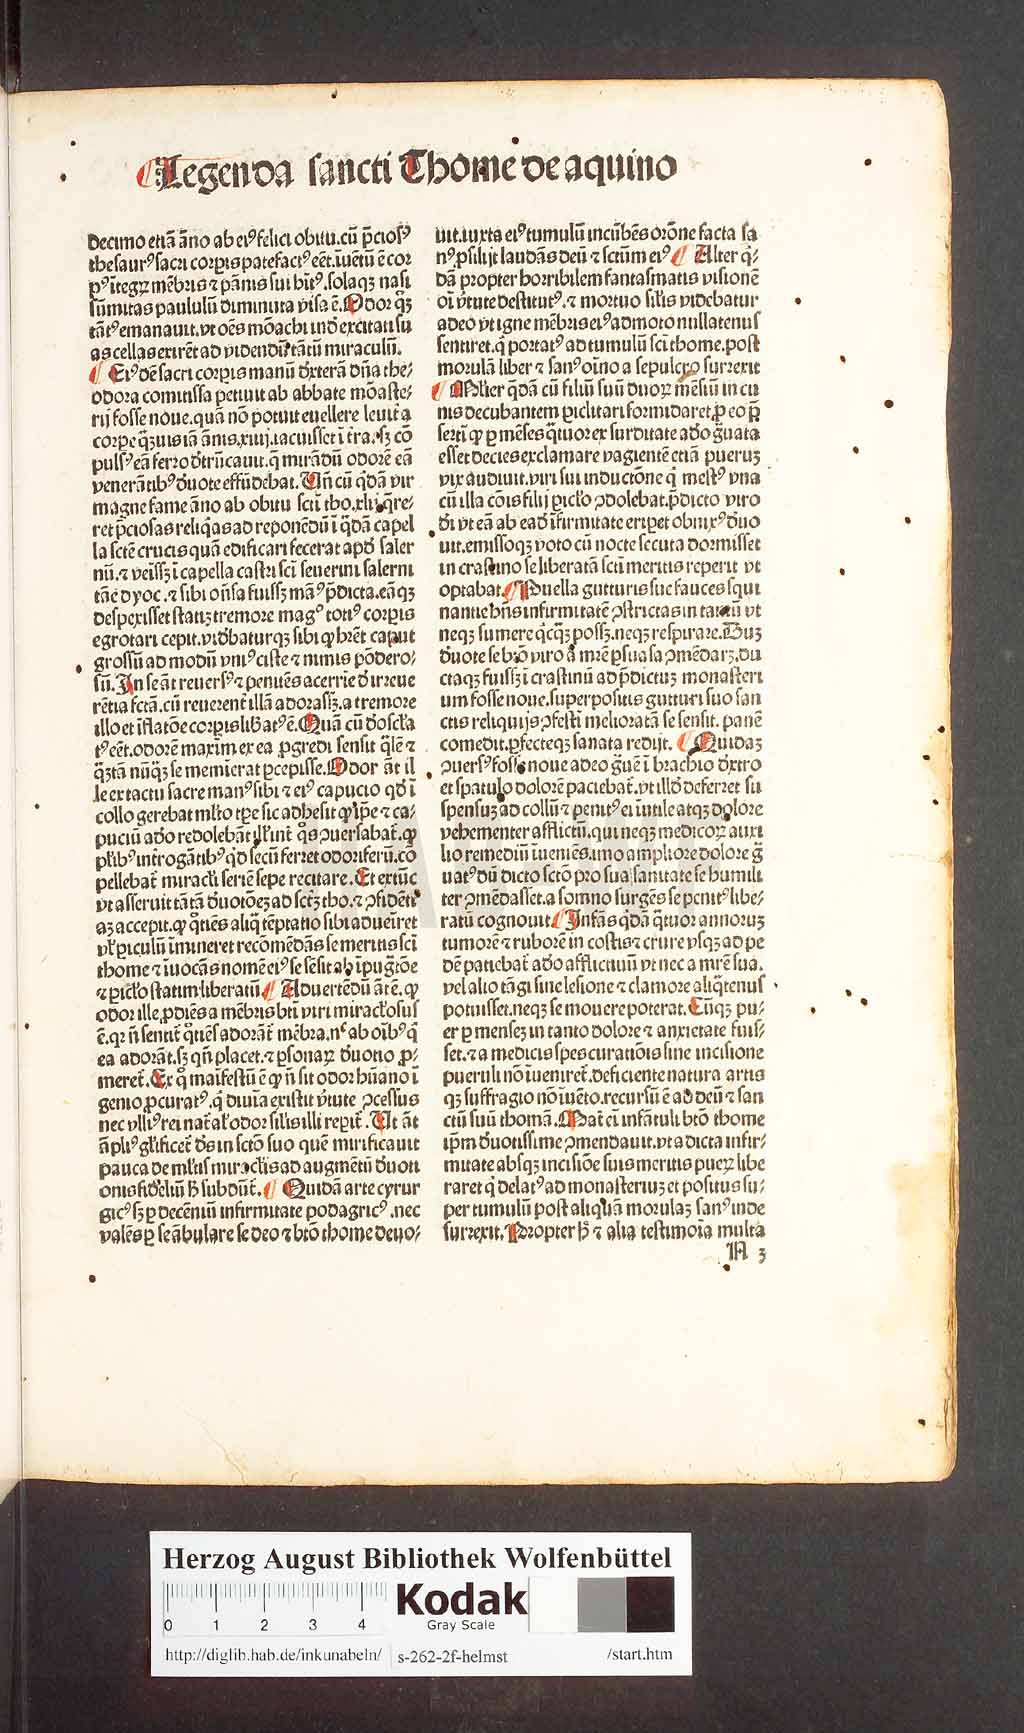 Legenda sancti Thome de aquino
decimo etiā āno ab eiꝰ felici obitu. cū p̄ciosꝰ
thesaurꝰ sacri corpis patefactꝰ eēt. īuētū ē cor
pꝰ ītegꝝ mēbris ⁊ pānis sui hītꝰ. solaqꝫ nasi
sūmitas paululū diminuta visa ē. Odor qꝫ
tātꝰ emanauit. vt oēs mōachi inde excitati su
as cellas exirēt ad videndū tātū miraculū.
Eiꝰ dē sacri corpis manū dexterā dn̄a the⸗
odora comitissa petiuit ab abbate mōaste⸗
rij fosse noue. quā nō potuit euellere leuit̄ a
corpe qꝫuis iā ānis. xiiij. iacuisset ī t̄ra. sꝫ cō
pulsꝰ eā ferro detrūcauit. q̄ mirādū odorē eā
venerātibꝰ deuote effūdebat. Un̄ cū qdā vir
magne fame āno ab obitu scti tho. xli. qre⸗
ret p̄ciosas reliqas ad reponēdū ī qdā capel
la sctē crucis quā edificari fecerat apd saler
nū. ⁊ veīssꝫ ī capella castri sci seuerini salerni
tāe dyoc. ⁊ sibi on̄sa fuissꝫ manꝰ p̄dicta. eāqꝫ
despexisset statiꝫ tremore magꝰ totiꝰ corpis
egrotari cepit. videbaturqꝫ sibi ꝙ hrēt caput
grossū ad modū vniꝰ ciste ⁊ nimis pōdero⸗
sū. In se āt reuersꝰ ⁊ penitēs acerrie de irreue
rētia fctā. cū reuerent̄ illā adorassꝫ. a tremore
illo et īflatōe corpis lib̄atꝰ ē. Quā cū deoscl̄a
tꝰ eēt. odorē maxim̄ ex ea progredi sensit qlē ⁊
qꝫtā nūqꝫ se meminerat pcepisse. Odor āt il
le ex tactu sacre manꝰ sibi ⁊ eiꝰ capucio qd ī
collo gerebat ml̄to tpe sic adhesit ꝙ īpe ⁊ ca⸗
puciū
pellebat̄ miracl̄i seriē sepe recitare. Et extūc
thome ⁊ īuocās nomē eiꝰ se sēsit ab īpugtōe
⁊ picl̄o statim liberatū. Aduertēdū āt ē. ꝙ
odor ille. pdiēs a mēbris bti viri miracl̄osus
meret̄. Ex q manifestū ē ꝙ n̄ sit odor hūano ī
genio procuratꝰ. q diuīa existit v̄tute pcessus
pauca de ml̄tis miraclis ad augmētū deuoti
onis fideliū h̄ subdūt̄. Quidā arte cyrur
gicꝰ sꝫ p decēniū infirmitate podagricꝰ. nec
valēs p se ābulare se deo ⁊ btō thome deuo⸗
uit. iuxta eiꝰ tumulū incūbēs orōne facta sa
nꝰ psilijt laudās deū ⁊ sctūm eiꝰ. Alter q⸗
dā propter horribilem fantasmatis visionē
oī v̄tute destitutꝰ. ⁊ mortuo silis videbatur
adeo vt igne mēbris eiꝰ admoto nullatenus
sentiret. q portatꝰ ad tumulū sci thome. post
morulā liber ⁊ sanꝰ oīno a sepulcro surrexit
Mulier qdā cū filiū suū duoꝝ mēsiū in cu
nis decubantem piclitari formidaret. pro eo p̄
serti ꝙ p mēses qtuor ex surditate adeo grauata
esset decies exclamare vagientē etiā pueruꝫ
vix audiuit. viri sui inductōne q mestꝰ vna
cū illa cōis filij piclo ꝯdolebat. p̄dicto viro
dei vt eā ab eadē īfirmitate eripet obnixꝰ deuo
uit. emissoqꝫ voto cū nocte secuta dormisset
in crastino se liberatā scti meritis reperit vt
optabat. Puella gutturis sue fauces squi
nantie hn̄s infirmitatē ꝯstrictas in tantū vt
neqꝫ sumere qcqꝫ possꝫ. neqꝫ respirare. Duꝫ
deuote se bto viro a mre psua sa ꝯmēdarꝫ. du
ctaqꝫ fuissꝫ ī crastinū ad p̄dictuꝫ monasteri
um fosse noue. superpositis gutturi suo san
ctis reliquijs ꝯfesti melioratā se sensit. panē
comedit. pfecteqꝫ sanata redijt. Quidaꝫ
ꝯuersꝰ fosse noue adeo grauē ī brachio dextro
et spatulo dolorē paciebat̄. vt illd deferret su
spensuꝫ ad collū ⁊ penitꝰ ei inutile atqꝫ dolore
vehementer afflictū. qui neqꝫ medicoꝝ auxi
lio remediū īueniēs. imo ampliore dolore gra
uatꝰ dū dicto sctō pro sua sanitate se humili
ter ꝯmēdasset. a somno surgēs se penitꝰ libe⸗
ratū cognouit. Infās qdā qtuor annoruꝫ
tumorē ⁊ ruborē in costis ⁊ crure vsqꝫ ad pe
dē patiebat̄ adeo afflictiuū vt nec a mre sua.
vel alio tāgi sine lesione ⁊ clamore aliqtenus
potuisset. neqꝫ se mouere poterat. Cūqꝫ pu⸗
er p mensez in tanto dolore ⁊ anxietate fuis⸗
set. ⁊ a medicis spes curatiōis sine incisione
pueruli nō īueniret̄. deficiente natura artis
qꝫ suffragio nō īuēto. recursū ē ad deū ⁊ san
ctū suū thomā. Mat̄ ei infātuli btō thome
ipm deuotissime ꝯmendauit. vt a dicta infir⸗
mitate absqꝫ incisiōe suis meritis pueꝝ libe
raret q delatꝰ ad monasteriuꝫ et positus su⸗
per tumulū post aliquā morulaꝫ sanꝰ inde
surrexit. Propter h̄ ⁊ alia testimoīa multa
A 3
Herzog August Bibliothek Wolfenbüttel
0 1 2 3 4
Kodak
Gray Scale
http://diglib.hab.de/inkunabeln/
s-262-2f-helmst
/start.htm
HAB